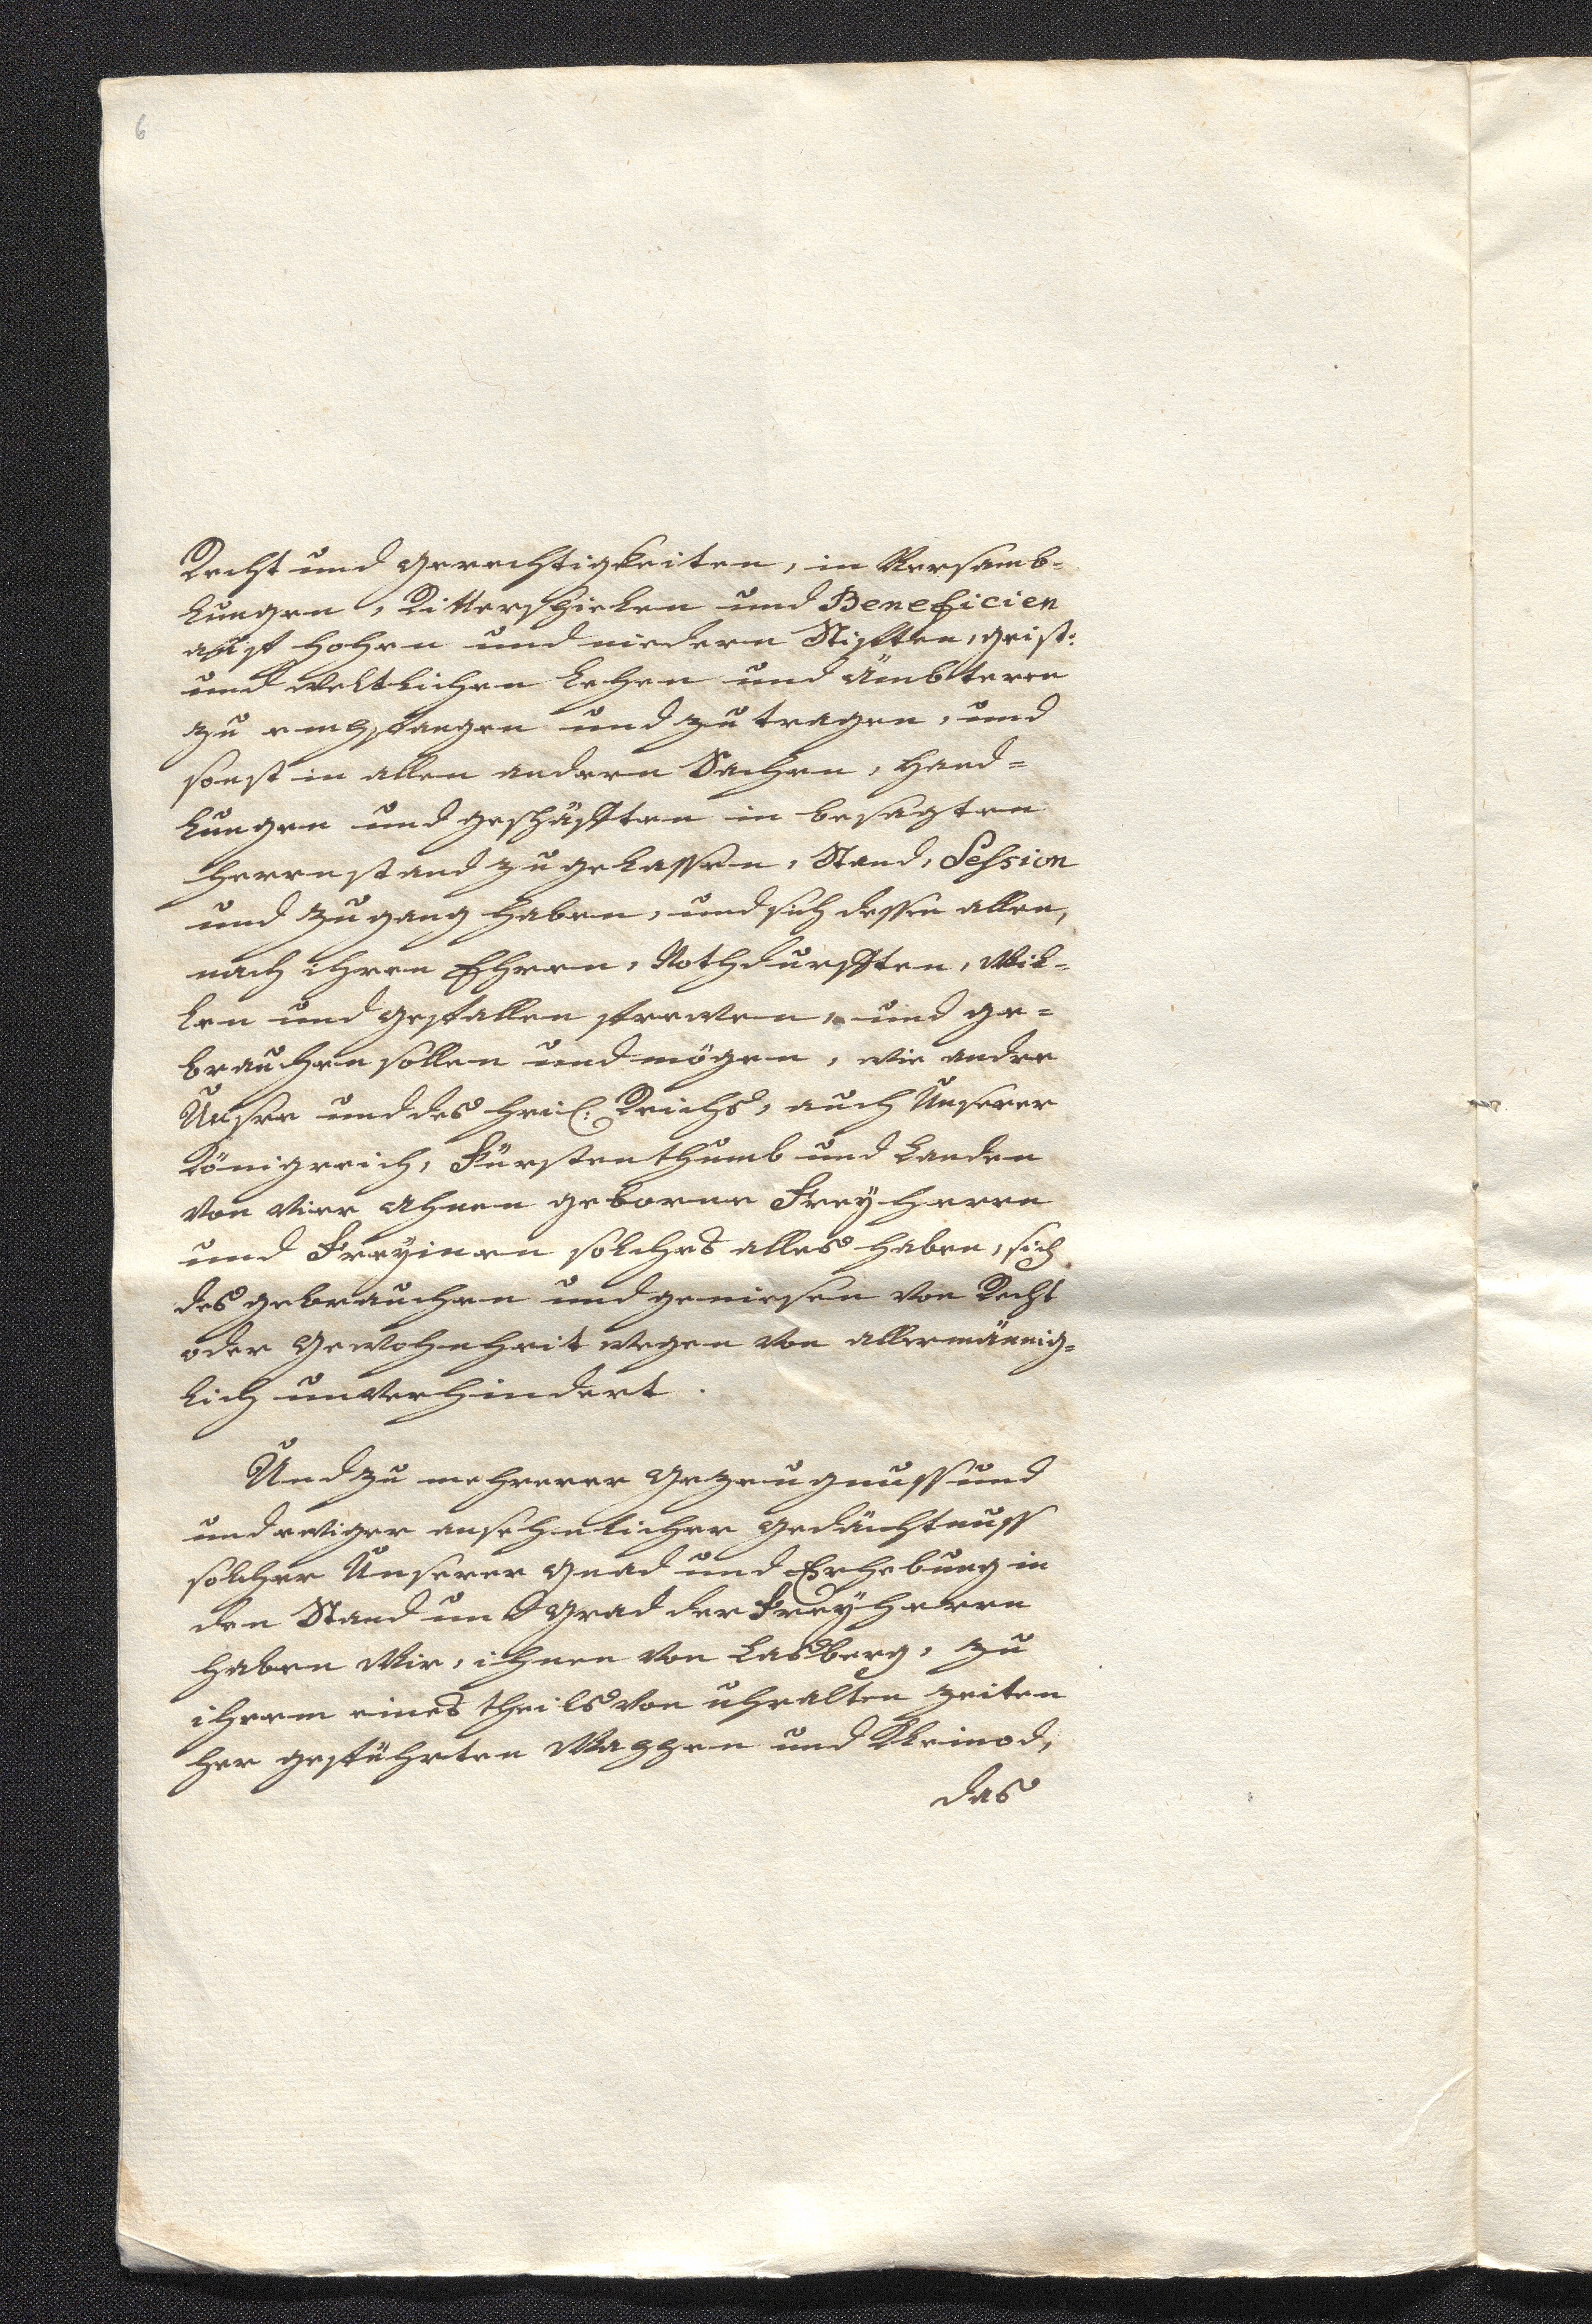 6
Recht und Gerechtigkeiten, in Versamb-
lungen, Ritterspielen und Beneficien
auff hohen und niedern Stifften, geist:
und weltlichen Lehen und Ämbtern
zu empfangen und zu tragen, und
sonst in allen andern Sachen, Hand=
lungen und geschäfften in besagten
Herrnstand zugelassen, Stand, Session
und Zugang haben, und sich dessen allen,
nach ihren Ehren, Nothdurfften, Wil=
len und gefallen frewen, und ge=
brauchen sollen und mögen, wie andere
Unsere und des heil: Reichs, auch Unserer
Königreich, Fürstenthumb und Landen
von vier Ahnen geborne Freyherrn
und Freyinen solches alles haben, sich
des gebrauchen und geniesen von Recht
oder Gewohnheit wegen von allermännig=
lich unverhindert.
Und zu mehrerer Gezeugnuss und
und ewiger ansehnlicher Gedächtnuss
solcher Unserer Gnad und Erhebung in
den Stand und Grad der Freyherrn
haben Wir, ihnen von Lasberg, zu
ihrem eines theils von uhralten Zeiten
her geführten Wappen und Kleinod,
das